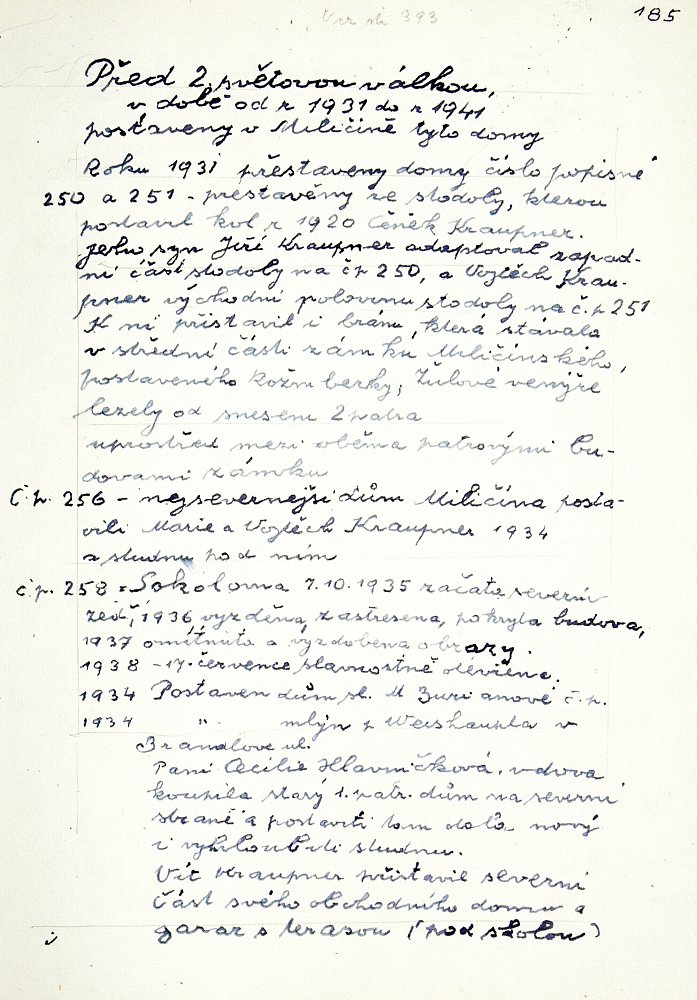 Viz str 393
185
Před 2. světovou válkou,
v době od r 1931 do r 1941
postaveny v Miličíně tyto domy
Roku 1931 přestaveny domy číslo popisné
250 a 251 - prestavěny ze stodoly, kterou
postavil kol r 1920 Čeněk Kraupner.
jeho syn Jiří Kraupner adaptoval západ-
ní část stodoly na čp 250, a Vojtěch Krau-
pner východní polovinu stodoly na č.p 251
K ní přistavil i bránu, která stávala
v střední části zámku Miličínského,
postaveného Rožmberky; Žulové veřeje
lezely od snesení 2 patra
uprostřed mezi oběma patrovými bu-
dovami zámku
Č.p. 256 - nejsevernejší dům Miličína posta-
vili Marie a Vojtěch Kraupner 1934
a studnu pod ním
č.p. 258 = Sokolovna 7.10.1935 začata severní
zeď, 1936 vyzděna, zastresena, pokryta budova,
1937 omítnuta a vyzdobena obrazy.
1938 - 17. července slavnostně otevřena.
1934 Postaven dům sl. M. č.p.
1934 " mlýn p Weishaupta v
Brandlove ul.
Paní Cecilie Hlavničková, vdova
koupila starý 1. patr. dům na severní
straně a postaviti tam dala nový
i vyhloubili studnu.
Vít Kraupner přistavil severní
část svého obchodního domu a
garaz s terasou (pod skolou)